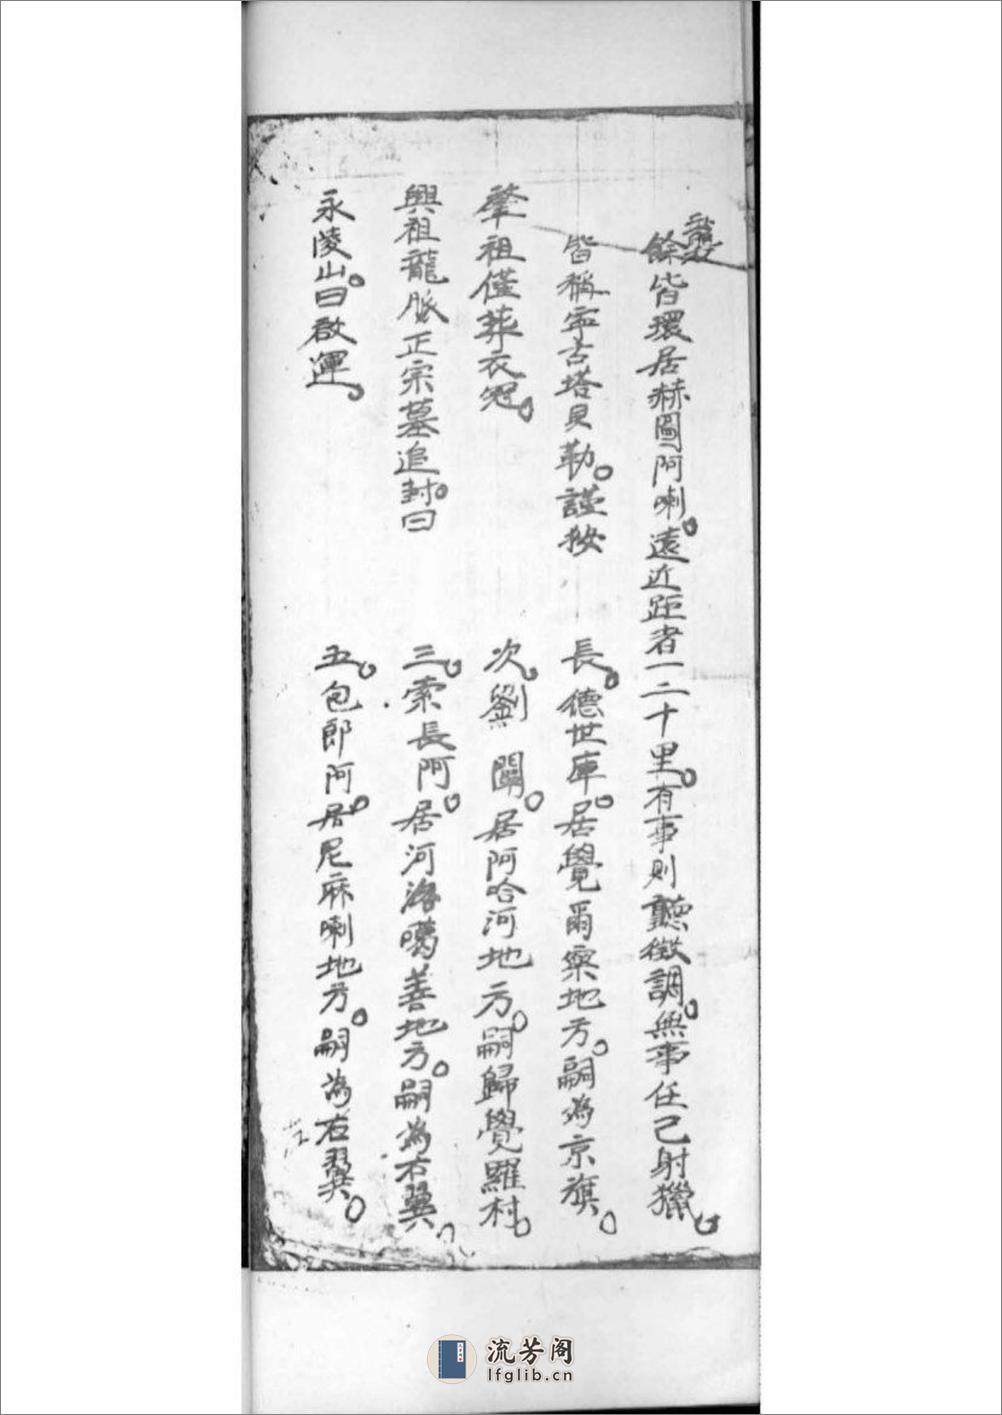 餘皆環居赫圖阿喇。遠近距者一二十里。有事則聽徵調。無事任己射獵。
皆稱寧古塔貝勒。謹按 長。德世庫。居覺爾察地方。嗣為京旗。
肇祖僅葬衣冠。 次。劉闡。居阿哈河地方。嗣歸覺羅村。
興祖龍脈正宗墓追封。曰 三。索長阿。居河洛噶善地方。嗣為右翼。
永陵山。曰啟運。 五。包郎阿。居尼麻喇地方。嗣為右翼。
流芳阁
lfglib.cn